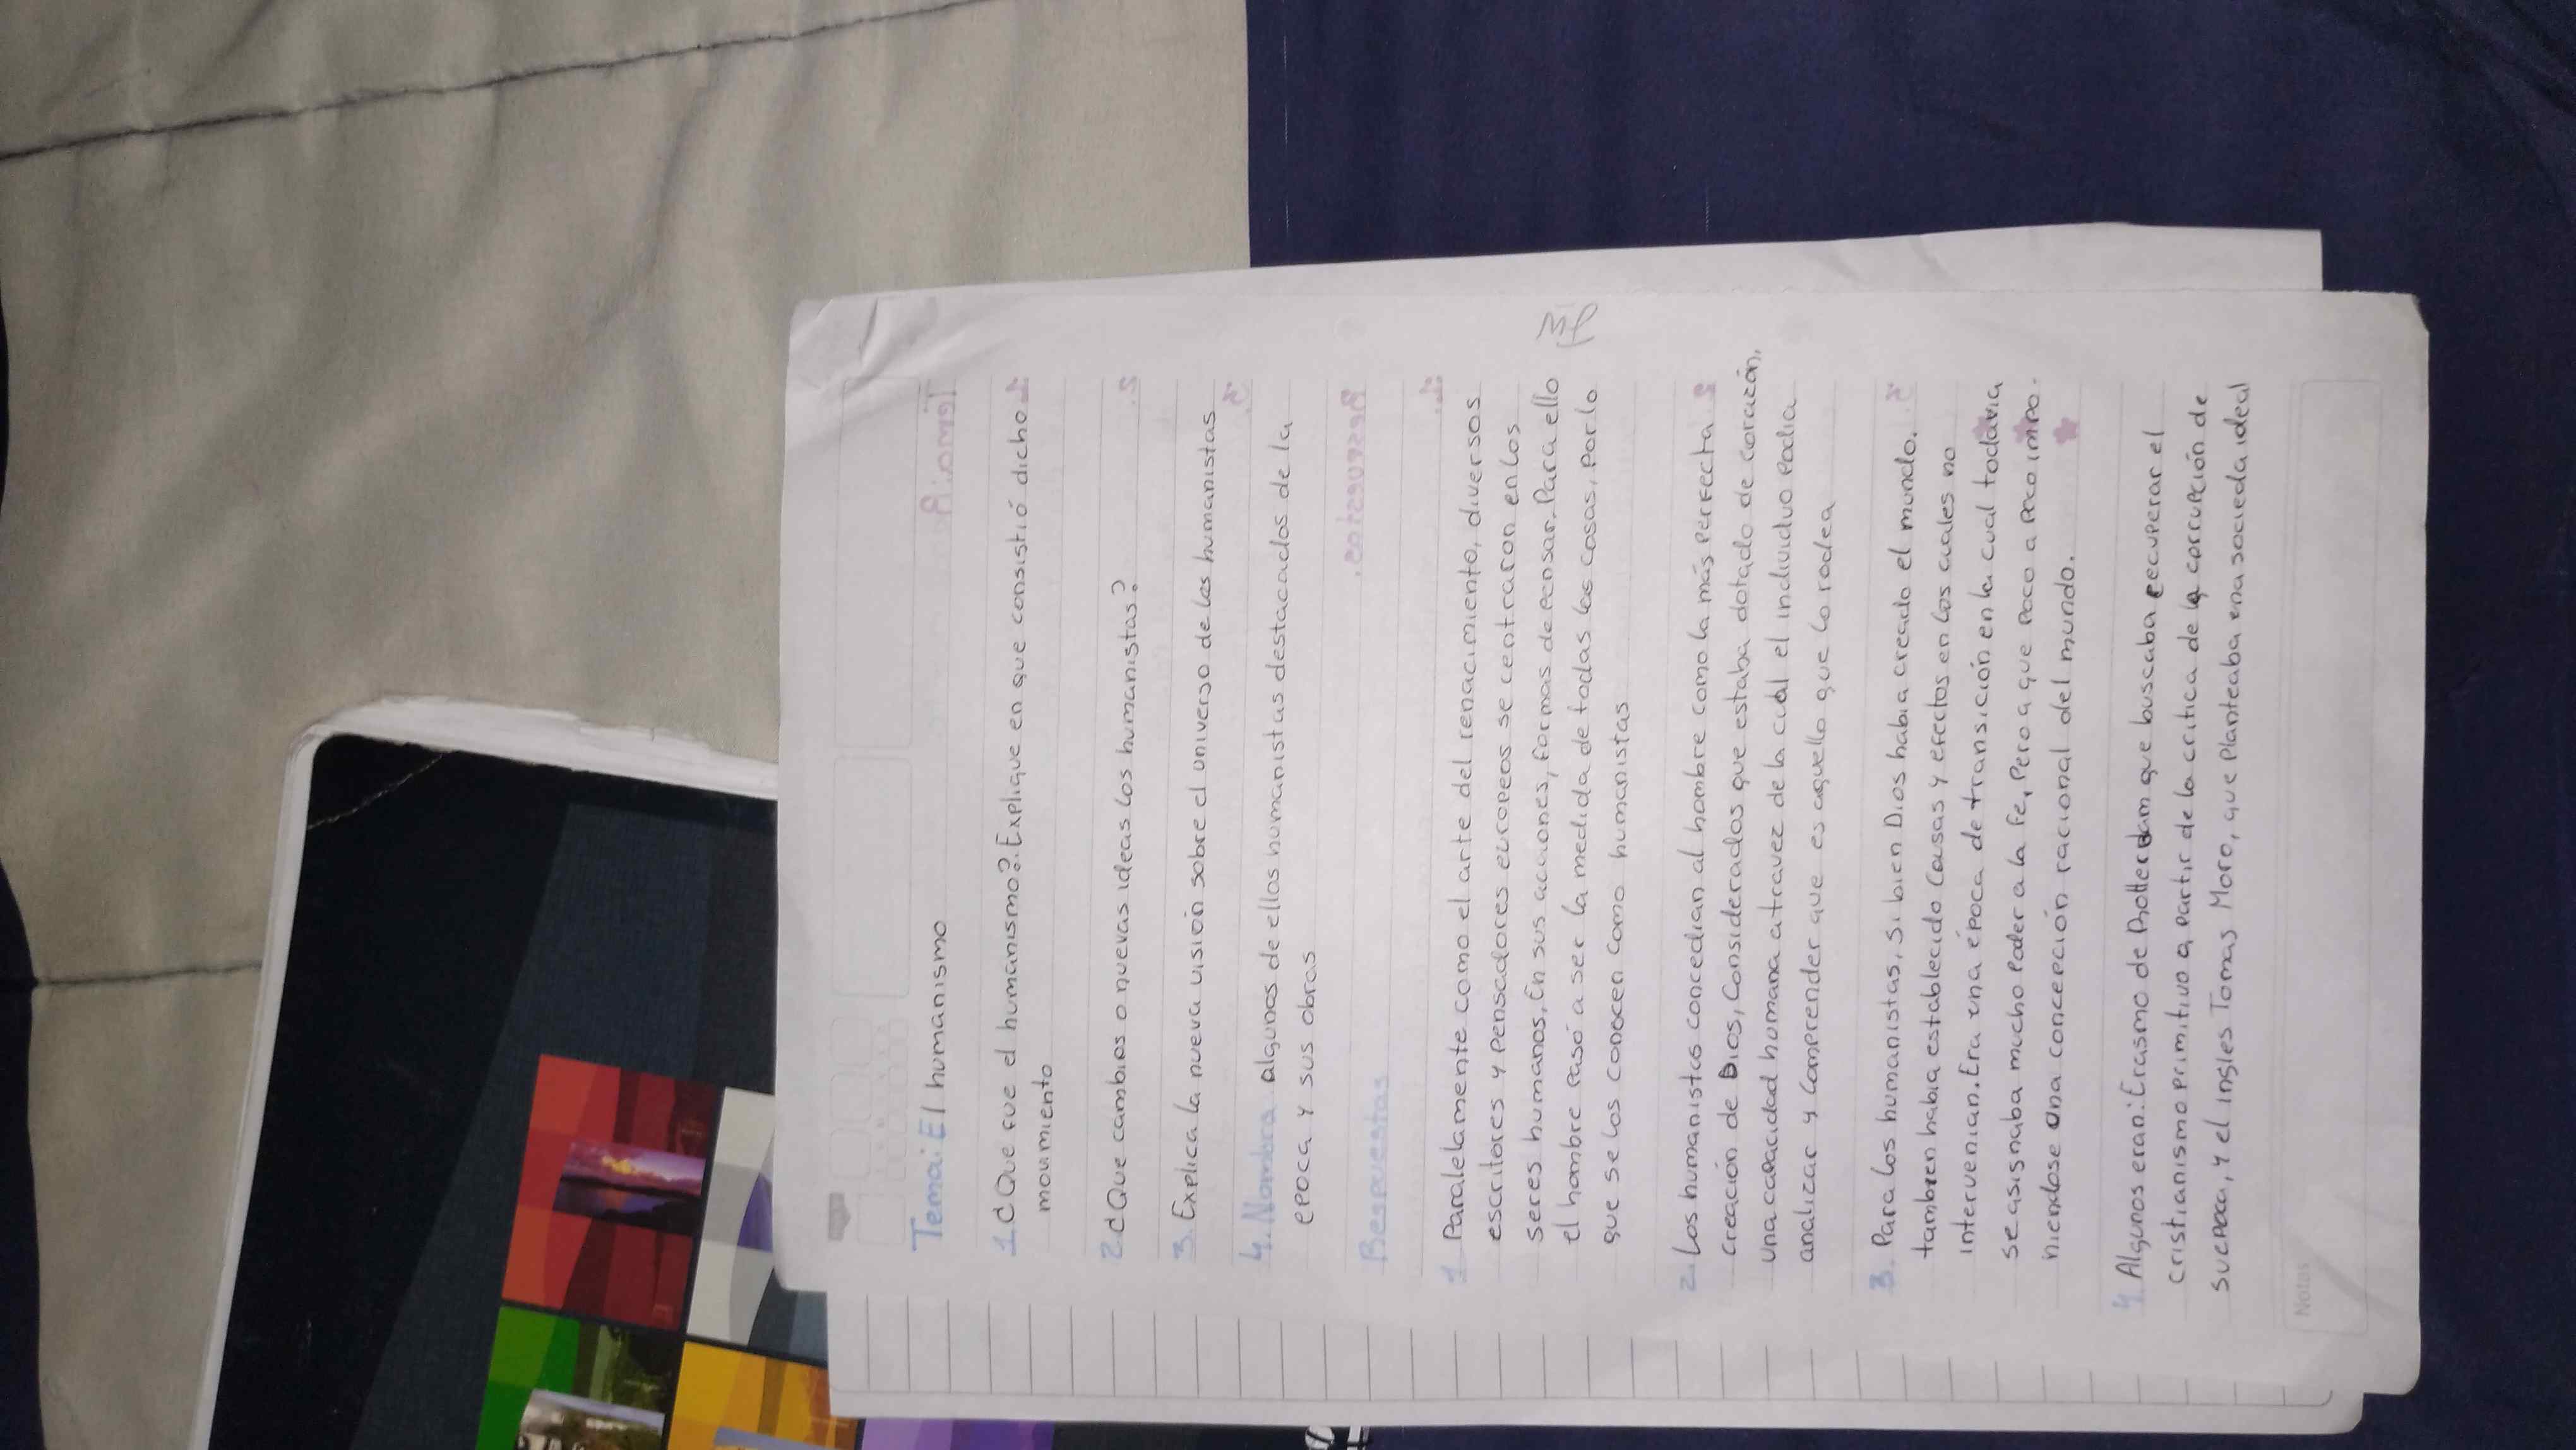 Tema: El humanismo
1. ¿Que fue el humanismo?. Explique en que consistió dicho
movimiento
2. ¿Que cambios o nuevas ideas los humanistas?
3. Explica la nueva visión sobre el universo de los humanistas
4. Nombra algunos de ellos humanistas destacados de la
epoca y sus obras
Respuestas
1. Paralelamente como el arte del renacimiento, diversos
escritores y pensadores europeos se centraron en los
seres humanos, En sus acciones, formas de pensar, Para ello
el hombre Pasó a ser la medida de todas las cosas, Por lo
que se los conocen como humanistas
2. Los humanistas concedian al hombre como la más perfecta
creación de Dios, Considerados que estaba dotado de corazón,
una capacidad humana a travez de la cual el individuo Podia
analizar y Comprender que es aquello que lo rodea
3. Para los humanistas, si bien Dios habia creado el mundo.
tambien habia establecido Causas y efectos en los cuales no
intervenian. Era una época de transición en la cual todavia
se asisnaba mucho Poder a la fe, Pero a que Poco a Poco impo.
niendose una concepción racional del mundo.
4. Algunos eran: Erasmo de Rotterdam que buscaba recuperar el
cristianismo primitivo a partir de la critica de la corrupción de
su epoca, y el ingles Tomas Moro, que Planteaba ena socieda ideal
Notas